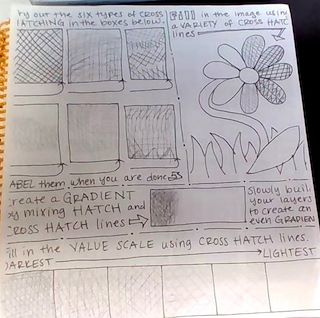 ry out the six types of CROSS
HATCHING in the boxes below.
Fill in the image using
a VARIETY of CROSS HATC
lines
ABEL them when you are done.
Create a GRADIENT
by mixing HATCH and
CROSS HATCH lines
Slowly build
your layers
to create an
even GRADIEN
Fill in the VALUE SCALE using CROSS HATCH lines.
DARKEST
LIGHTEST